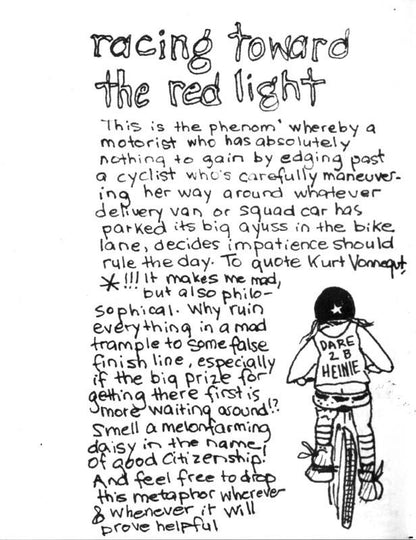 racing toward
the red light
This is the phenom' whereby a
motorist who has absolutely
nothing to gain by edging past
a cyclist who's carefully maneuver-
ing her way around whatever
delivery van or squad car has
parked its big ayuss in the bike
lane, decides impatience should
rule the day. To quote Kurt Vonnegut,
*!!! It makes me mad,
but also philo-
sophical. Why ruin
everything in a mad
trample to some false
finish line, especially
if the big prize for
getting there first is
more waiting around!?
Smell a melonfarming
daisy in the name
of good citizenship!
And feel free to drop
this metaphor wherever
& whenever it will
prove helpful
DARE
2 B
HEINIE